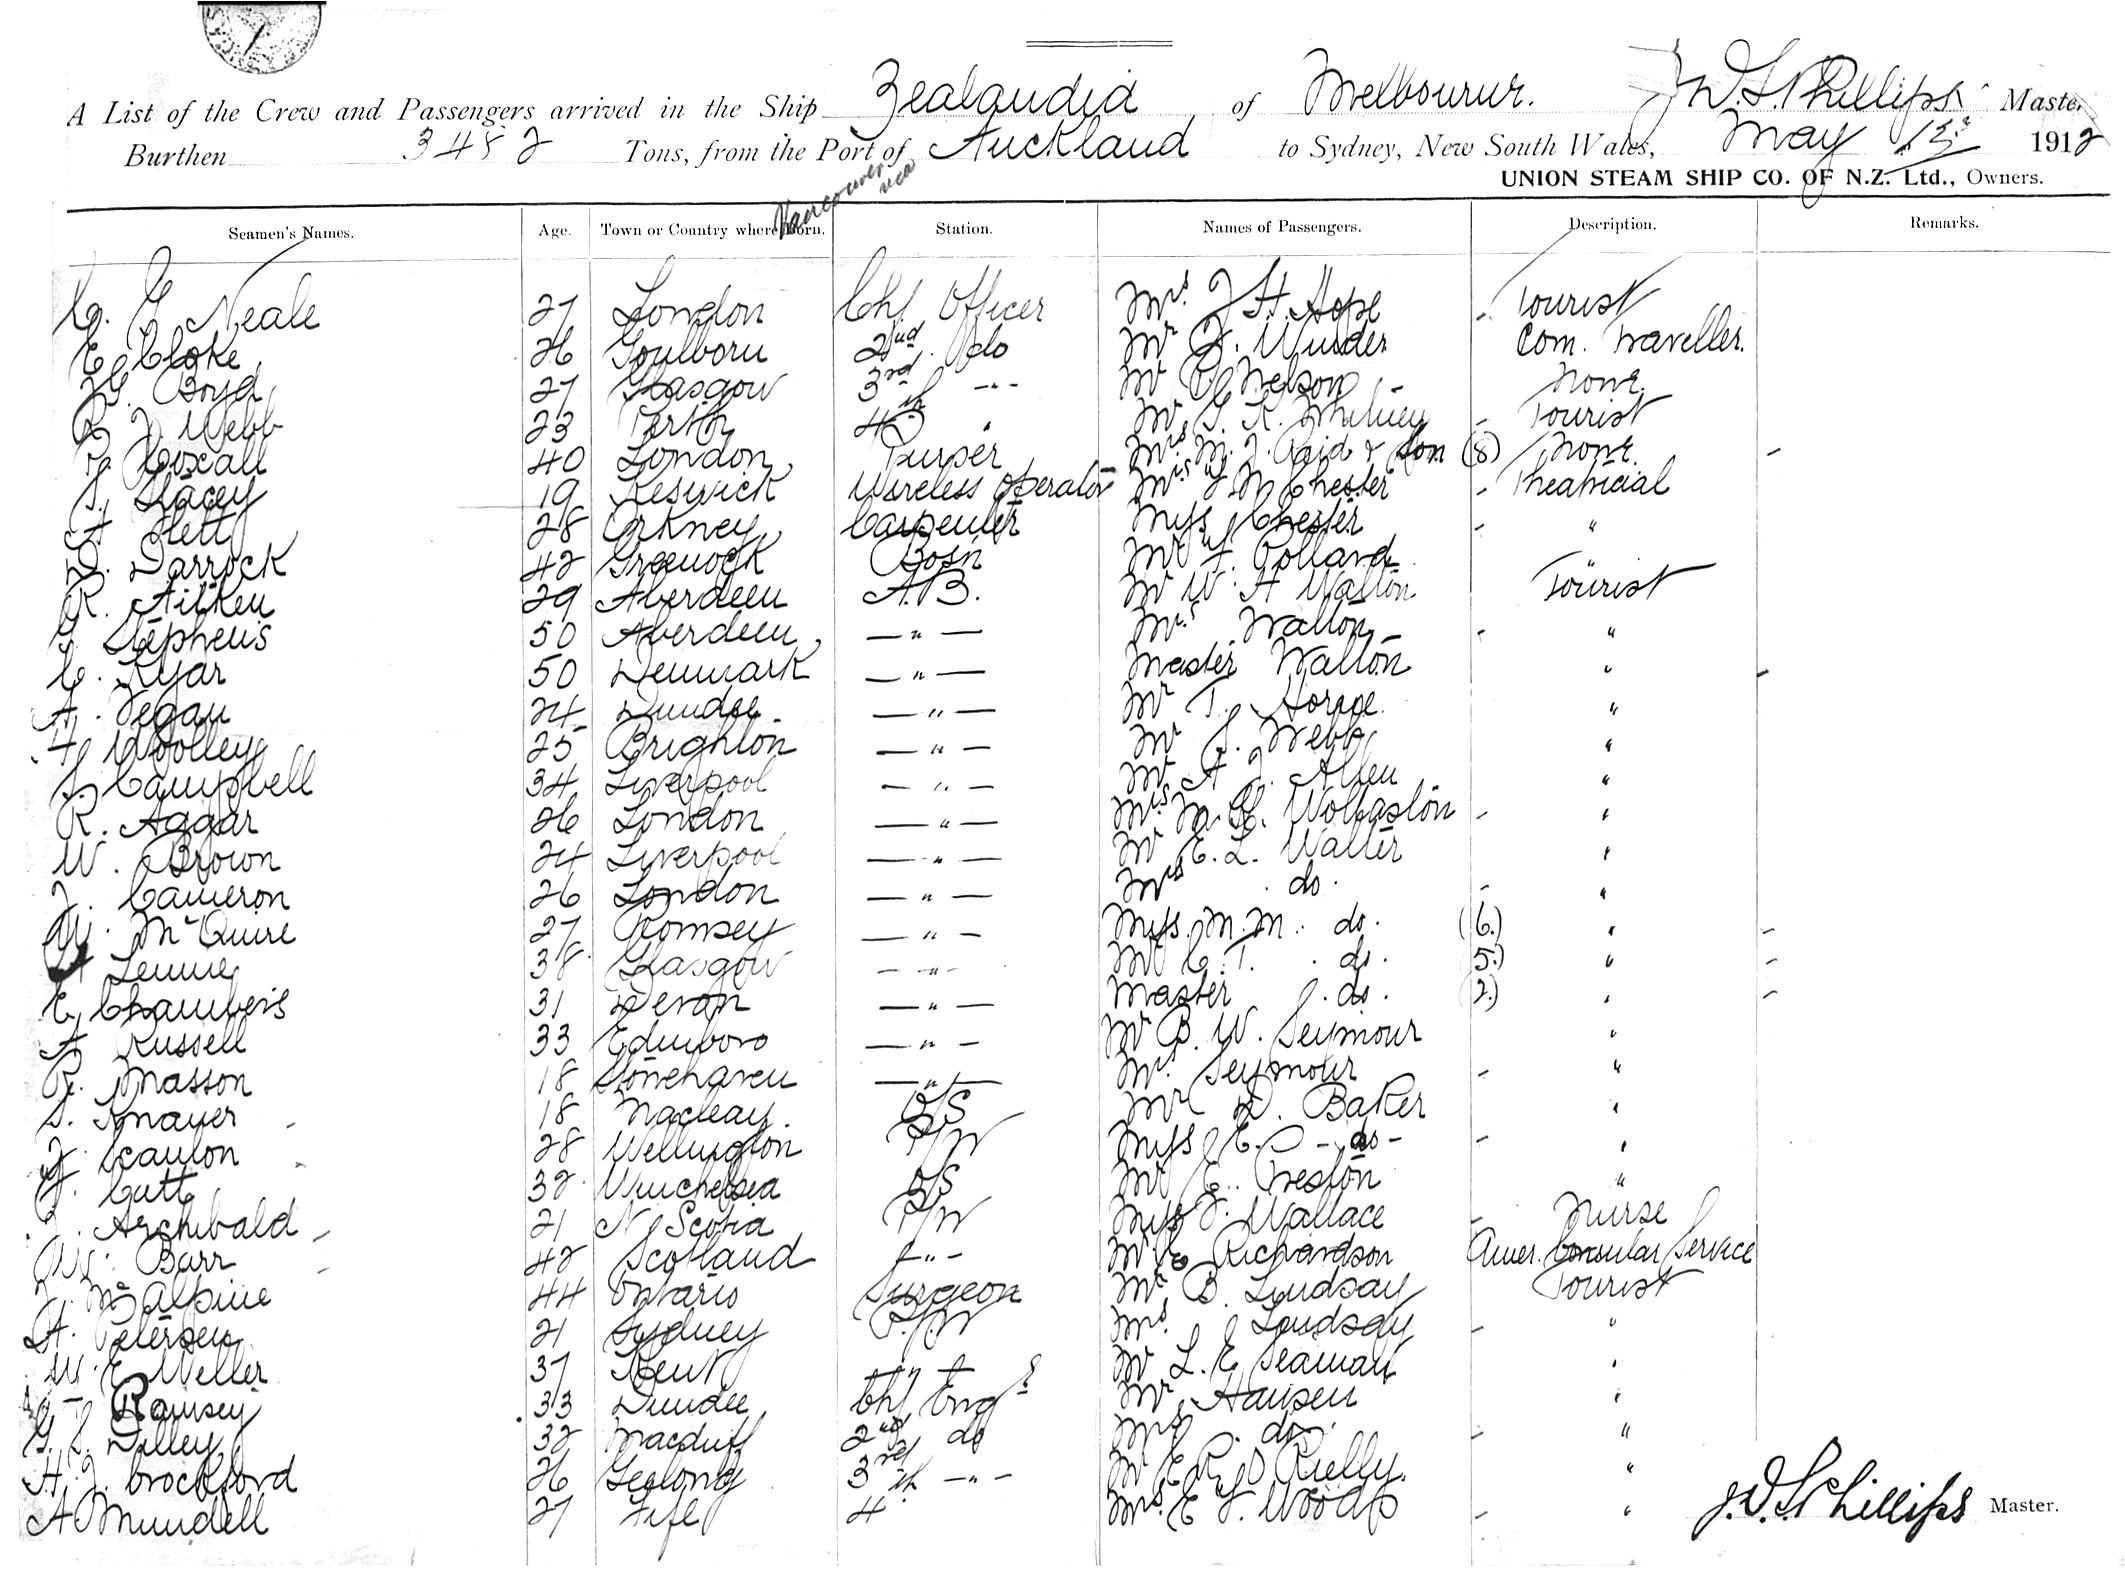 A List of the Crew and Passengers arrived in the Ship Zealandia of Melbourne. J. D. S. Phillips Master
Burthen 3482 Tons, from the Port of Auckland to Sydney, New South Wales, May 13th 1912
Vancouver via
UNION STEAM SHIP CO. OF N.Z. Ltd., Owners.
Seamen's Names. Age. Town or Country where Born. Station. Names of Passengers. Description. Remarks.
C. G. Neale 27 London Chf Officer Mrs. J H. Hope Tourist
E. Cloke 26 Goulborn 2nd do Mr F. Winder Com. Traveller.
Boyd 27 Glasgow 3rd -"- Mr C. Nelson None.
R J. Webb 23 Perth 4th " Mr G. R. Whitney Tourist
Coxall 40 London Purser Mrs M. J. Reid & Son (8) None.
S. Stacey 19 Keswick Wireless Operator Mrs Y. M Chester Theatricial
A Flett 28 Orkney Carpenter Miss Chester "
D. Darrock 42 Greenock Bosn Mr F. Pollard
R. Aitken 29 Aberdeen A.B. Mr W. A Walton Tourist
Stephens 50 Aberdeen —"— Mrs Walton "
C. Kyar 50 Denmark —"— Master Walton "
A. Fegan 24 Dundee —"— Mr T. Horne. "
H Woolley 25 Brighton —"— Mr S. Webb "
Campbell 34 Liverpool —"— Mr A J. Allen "
R. Aggar 26 London —"— Mrs M. H. Wollaston "
W. Brown 24 Liverpool —"— Mr E. L. Walter "
J. Cameron 26 London —"— Mrs do. "
W. McQuire 27 Romsey —"— Miss. M. M. do. (6.) "
Lennie 38 Glasgow —"— Mr C. T. do. (5.) "
E. Chambers 31 Devon —"— Master do. (2.) "
A Russell 33 Edinboro —"— Mr B. W. Seymour "
R. Masson 18 Stonehaven —"— Mrs. Seymour "
S. Knauer 18 Macleay O/S Mr D. Baker "
J. Scanlon 28 Wellington P/W Miss E. -do- "
J. Cutt 32 Winchelsea O/S Mr E. Preston "
Archibald 21 N. Scotia P/W Miss J. Wallace Nurse
W. Barr 42 Scotland -"- Mr E Richardson Amer. Consular Service
J. McAlpine 44 Ontario Surgeon Mr B. Lindsay Tourist
A. Petersen 21 Sydney P/W Mrs. Lindsay "
W. E. Weller 37 Kent Mr L. E Seaman "
Ramsey 33 Dundee Chf Engr Mr Hansen "
G. S. Dilley 32 Macduff 2nd do Mrs do. "
A. J. Crockford 26 Geelong 3rd -"- Mr E. R. Rielly. "
A Mundell 27 Fife 4th Mrs. E Y. Woods "
J. D. S. Phillips Master.